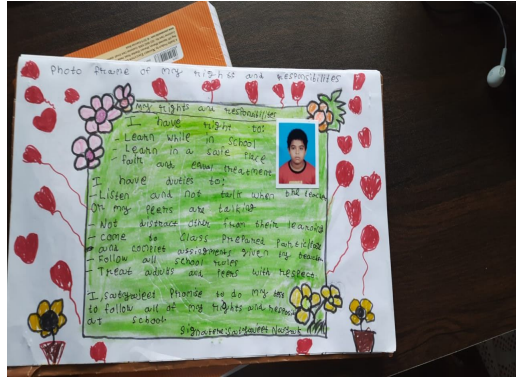 Photo frame of my rights and responsibilites
My rights and responsibilites
I have right to:
- Learn while in school
- Learn in a safe
fair and equal treatment
I have duties to:
- Listen and not talk when the teacher
or my peers are talking
- Not distract other from their learning
- come to class prepared participate
and complet assignments given by teacher
- Follow all school rules
- Treat adults and peers with respect
I, satyajeet Promise to do my best
to follow all of my rights and
at school
Signature: Satyajeet